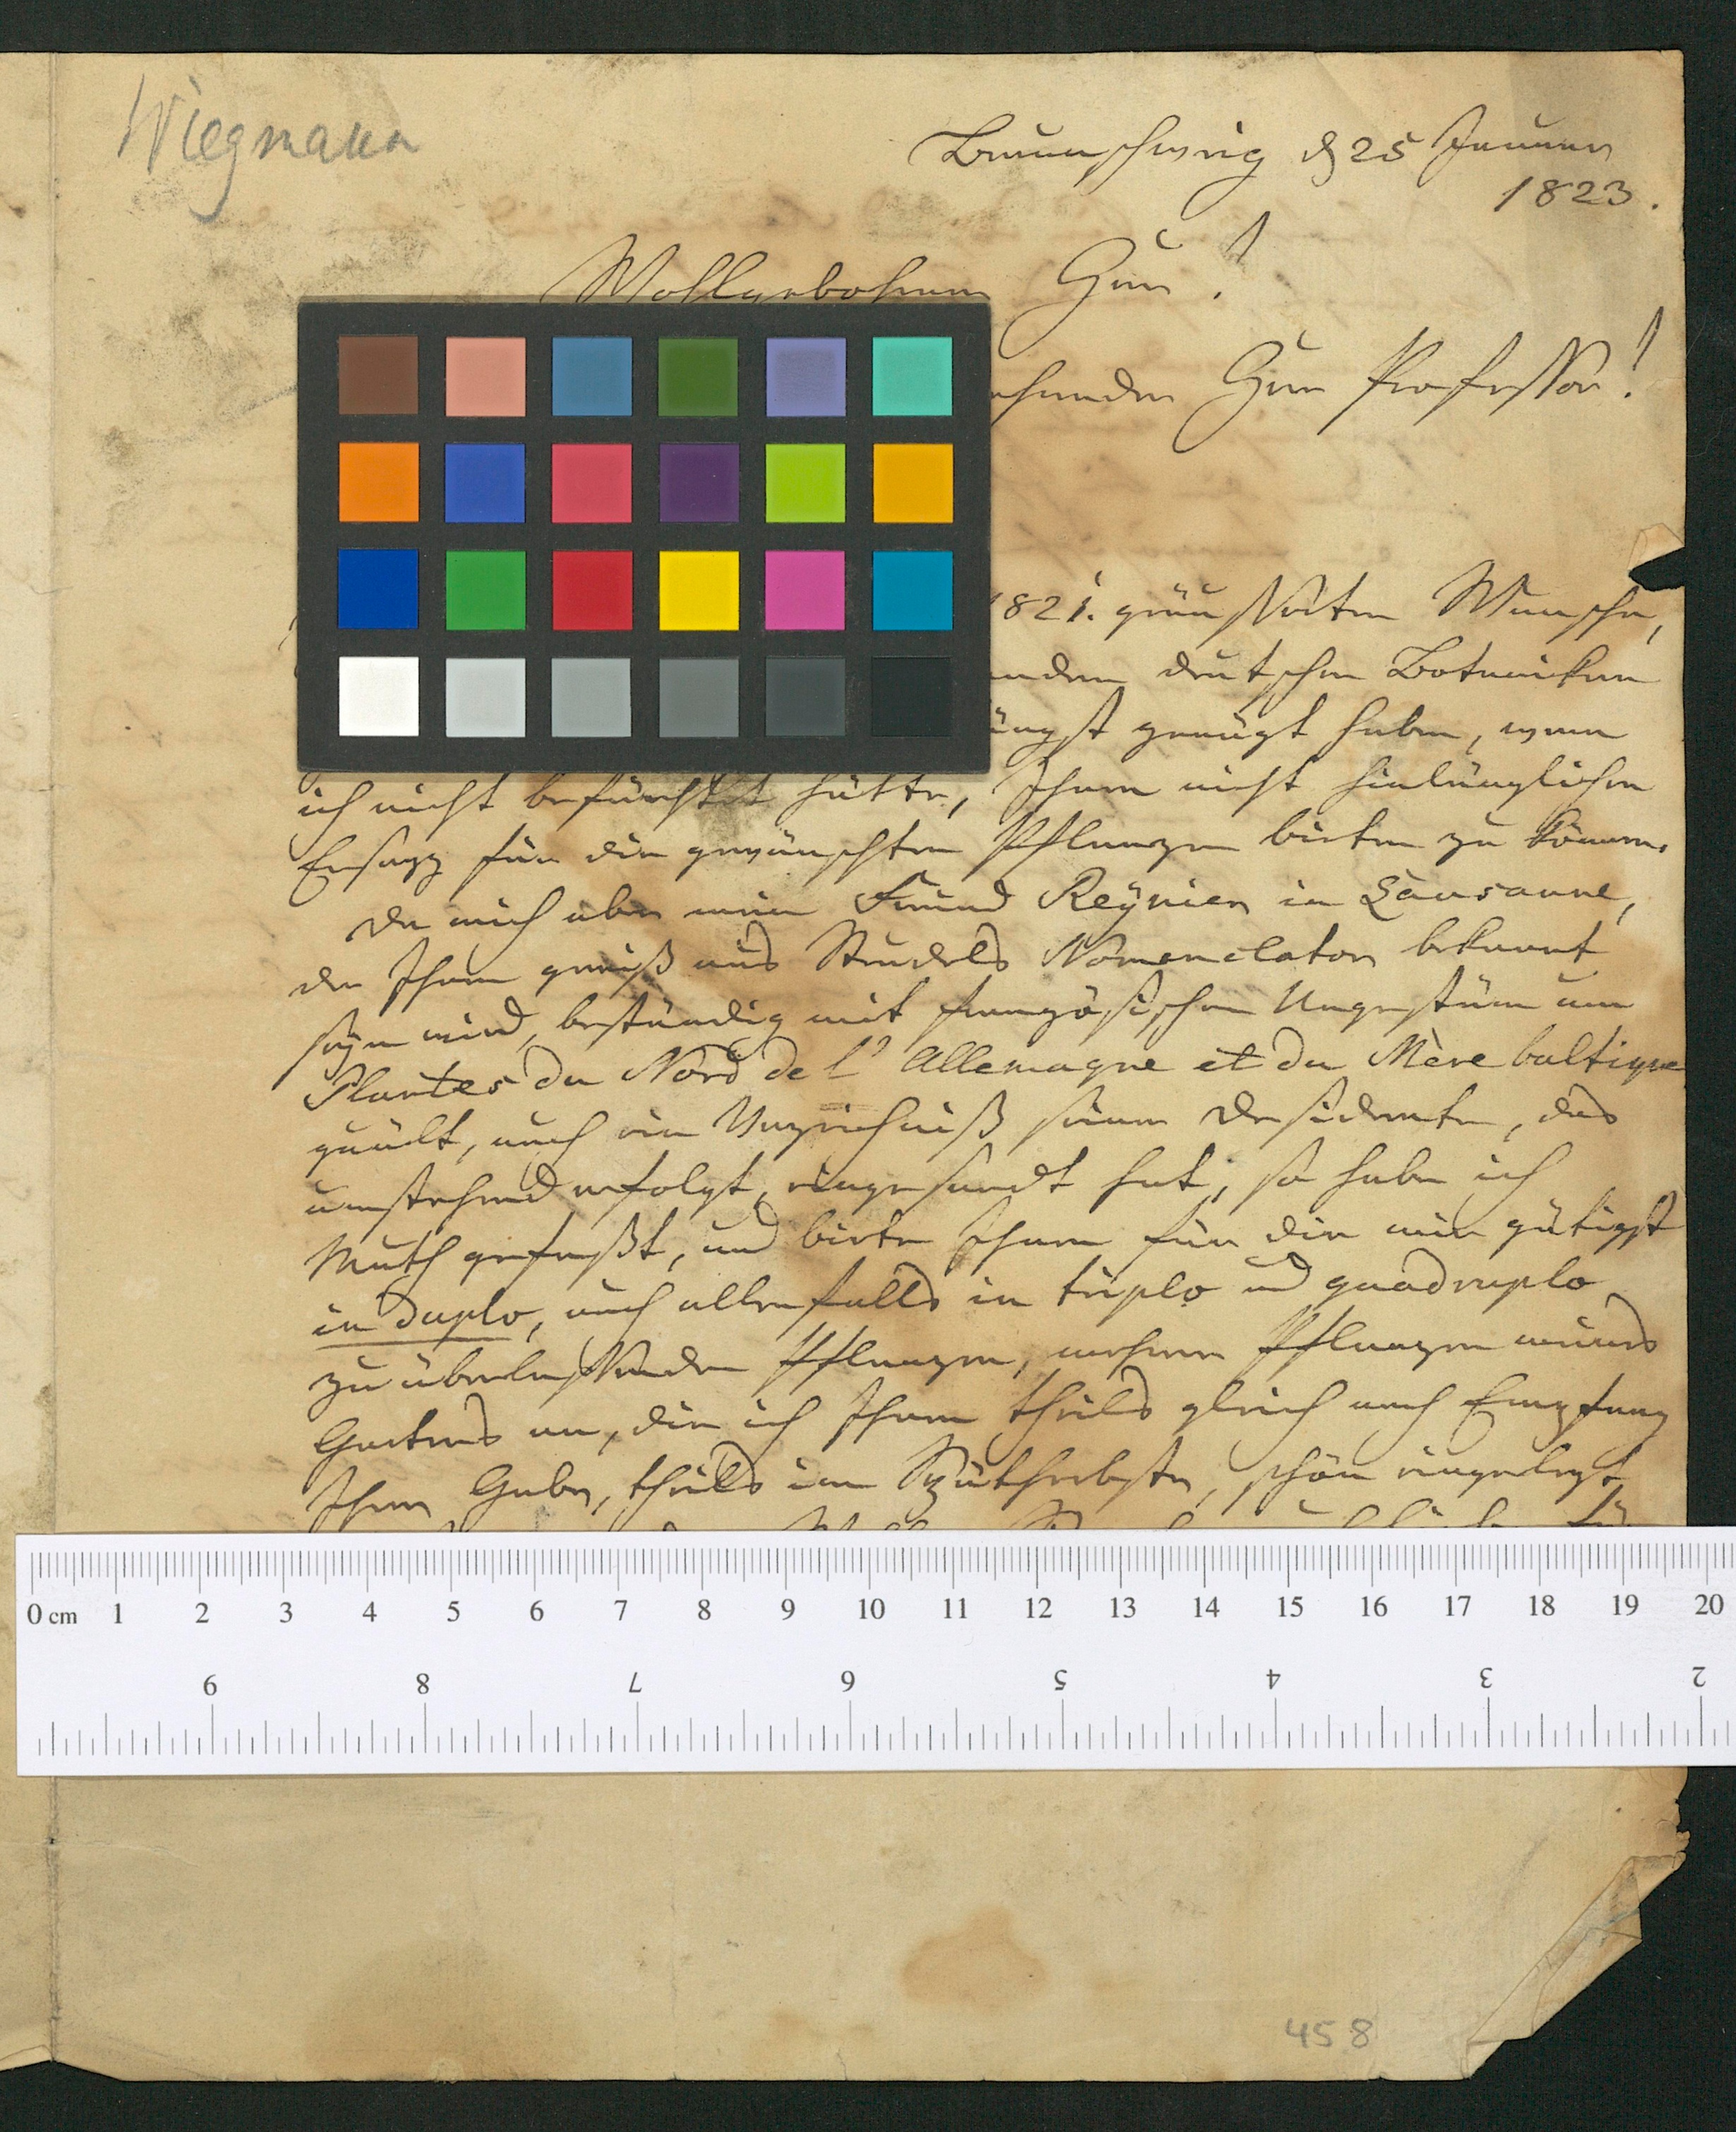 Wiegmann
Braunschweig d 25 Januar
1823.
Wohlgebohrner Herr!
Herr Professor!
1821. geäusserten Wunsche,
deutschen Botanikern
längst genügt haben, wenn
ich nicht befürchtet hätte, Ihnen nicht hinlänglichen
Ersazz für die gewünschten Pflanzen bieten zu können.
Da mich aber mein Freund Reÿnier in Lausanne,
der Ihnen gewiß aus Steudels Nomenclator bekannt
seÿn wird, beständig mit französischen Ungestüm um
Plantes du Nord de l'Allemagne et du Mère baltique
quält, auch ein Verzeichniß seiner Desiderate, das
umstehend erfolgt, eingesandt hat, so habe ich
Muth gefaßt, und biete Ihnen für die mir gütigst
in Duplo, auch allenfalls in triplo und quadruplo
zu überlassenden Pflanzen, mehrere Pflanzen meines
Gartens an, die ich Ihnen theils gleich nach Empfang
Ihrer Gaben, theils im Späthherbste, schön eingelegt
0 cm 1 2 3 4 5 6 7 8 9 10 11 12 13 14 15 16 17 18 19 20
9 8 7 6 5 4 3 2
458